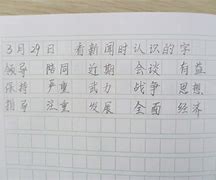 3月29日 看新闻时认识的字
领导 陪同 近期 会谈 有益
保持 严重 武力 战争 思想
指导 注重 发展 全面 经济